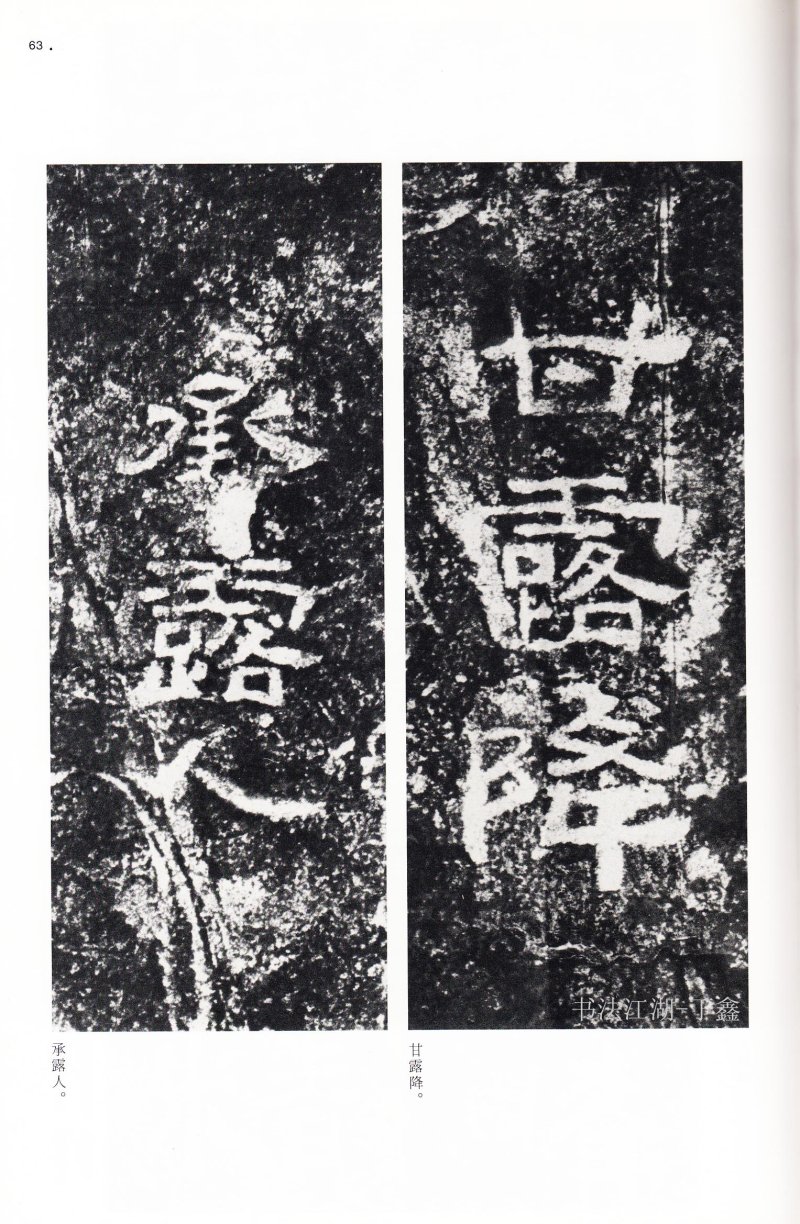 63.
甘露降
甘露降。
承露人
承露人。
书法江湖-丁鑫